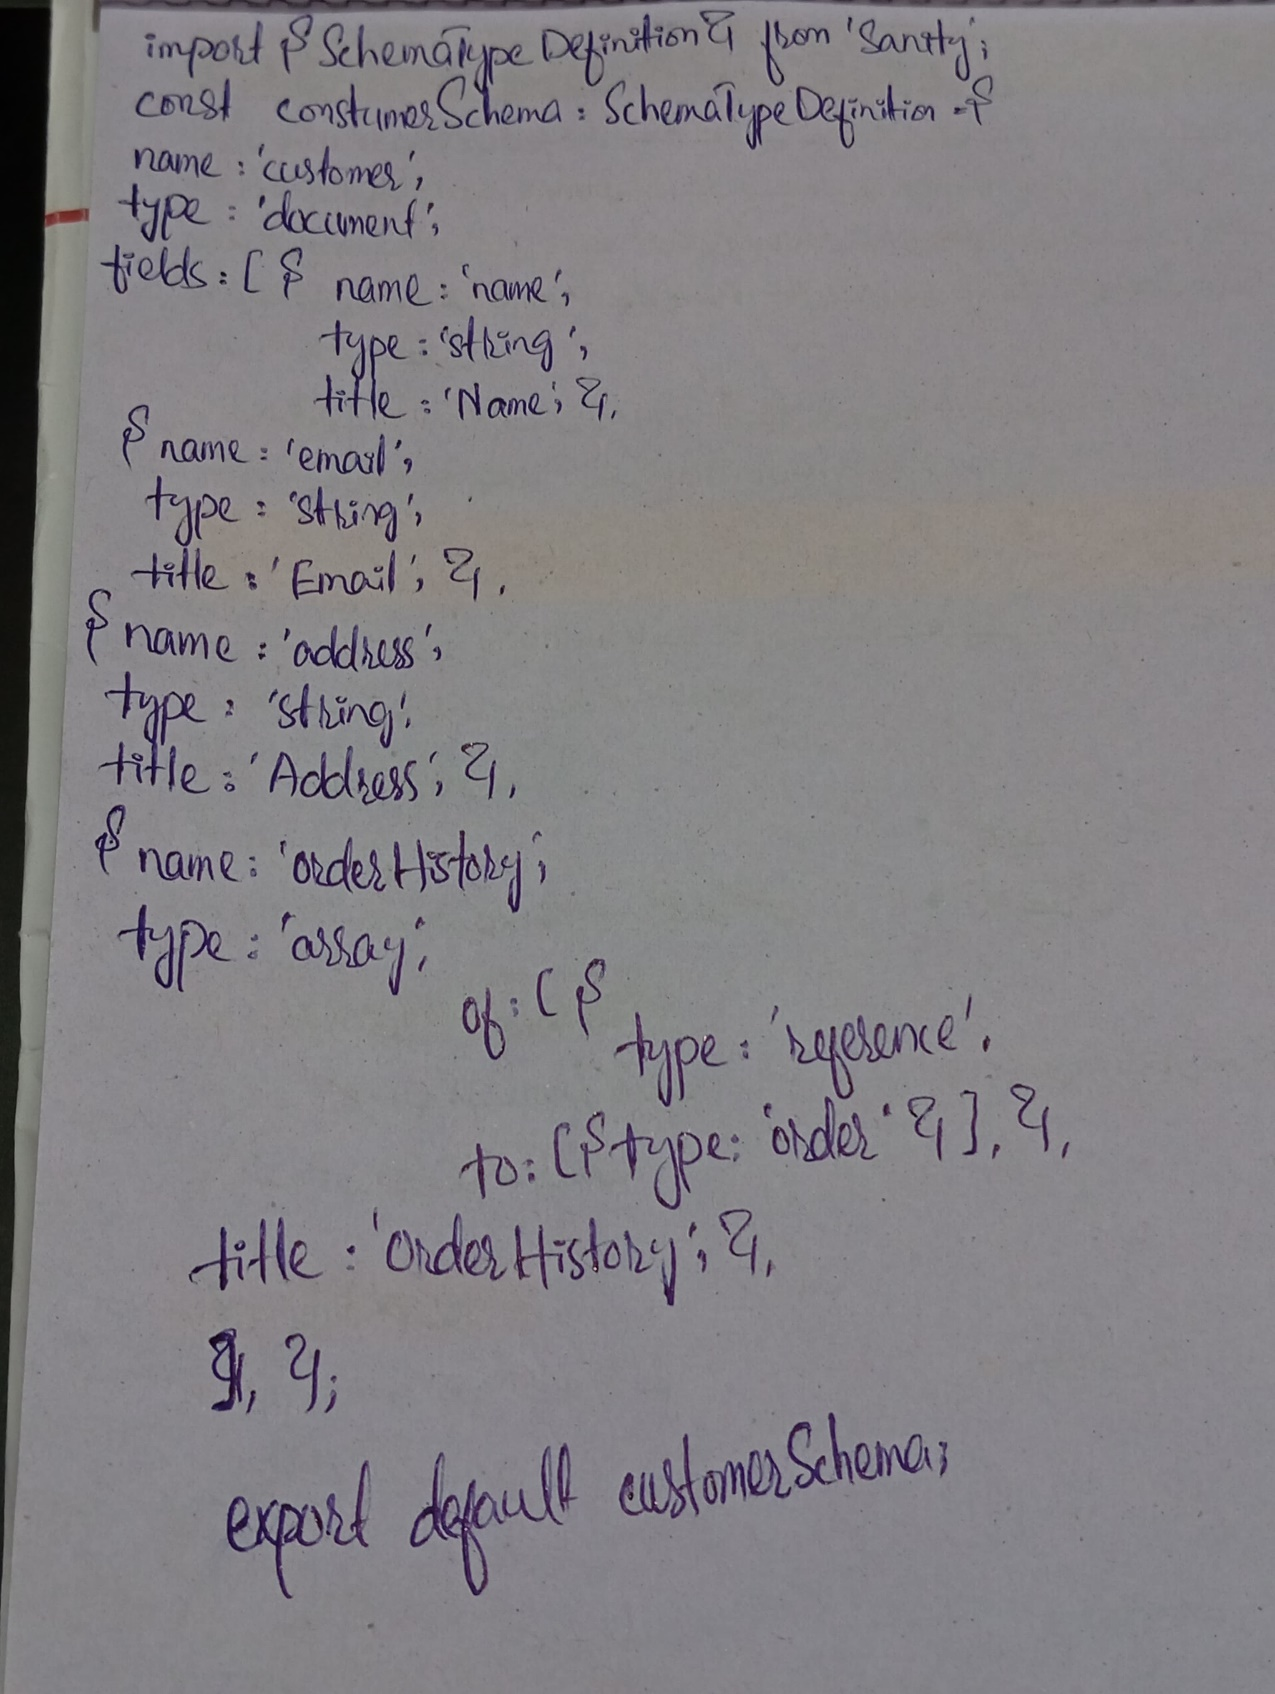 import { SchemaTypeDefinition } from 'Sanity';
const constumerSchema : SchemaTypeDefinition = {
name : 'customer',
type : 'document',
fields : [ { name : 'name',
type : 'string',
title : 'Name', },
{ name : 'email',
type : 'string',
title : 'Email', },
{ name : 'address',
type : 'string',
title : 'Address', },
{ name : 'orderHistory',
type : 'array',
of : [ {
type : 'reference',
to : [ { type : 'order' } ], },
title : 'OrderHistory', },
], };
export default customerSchema;